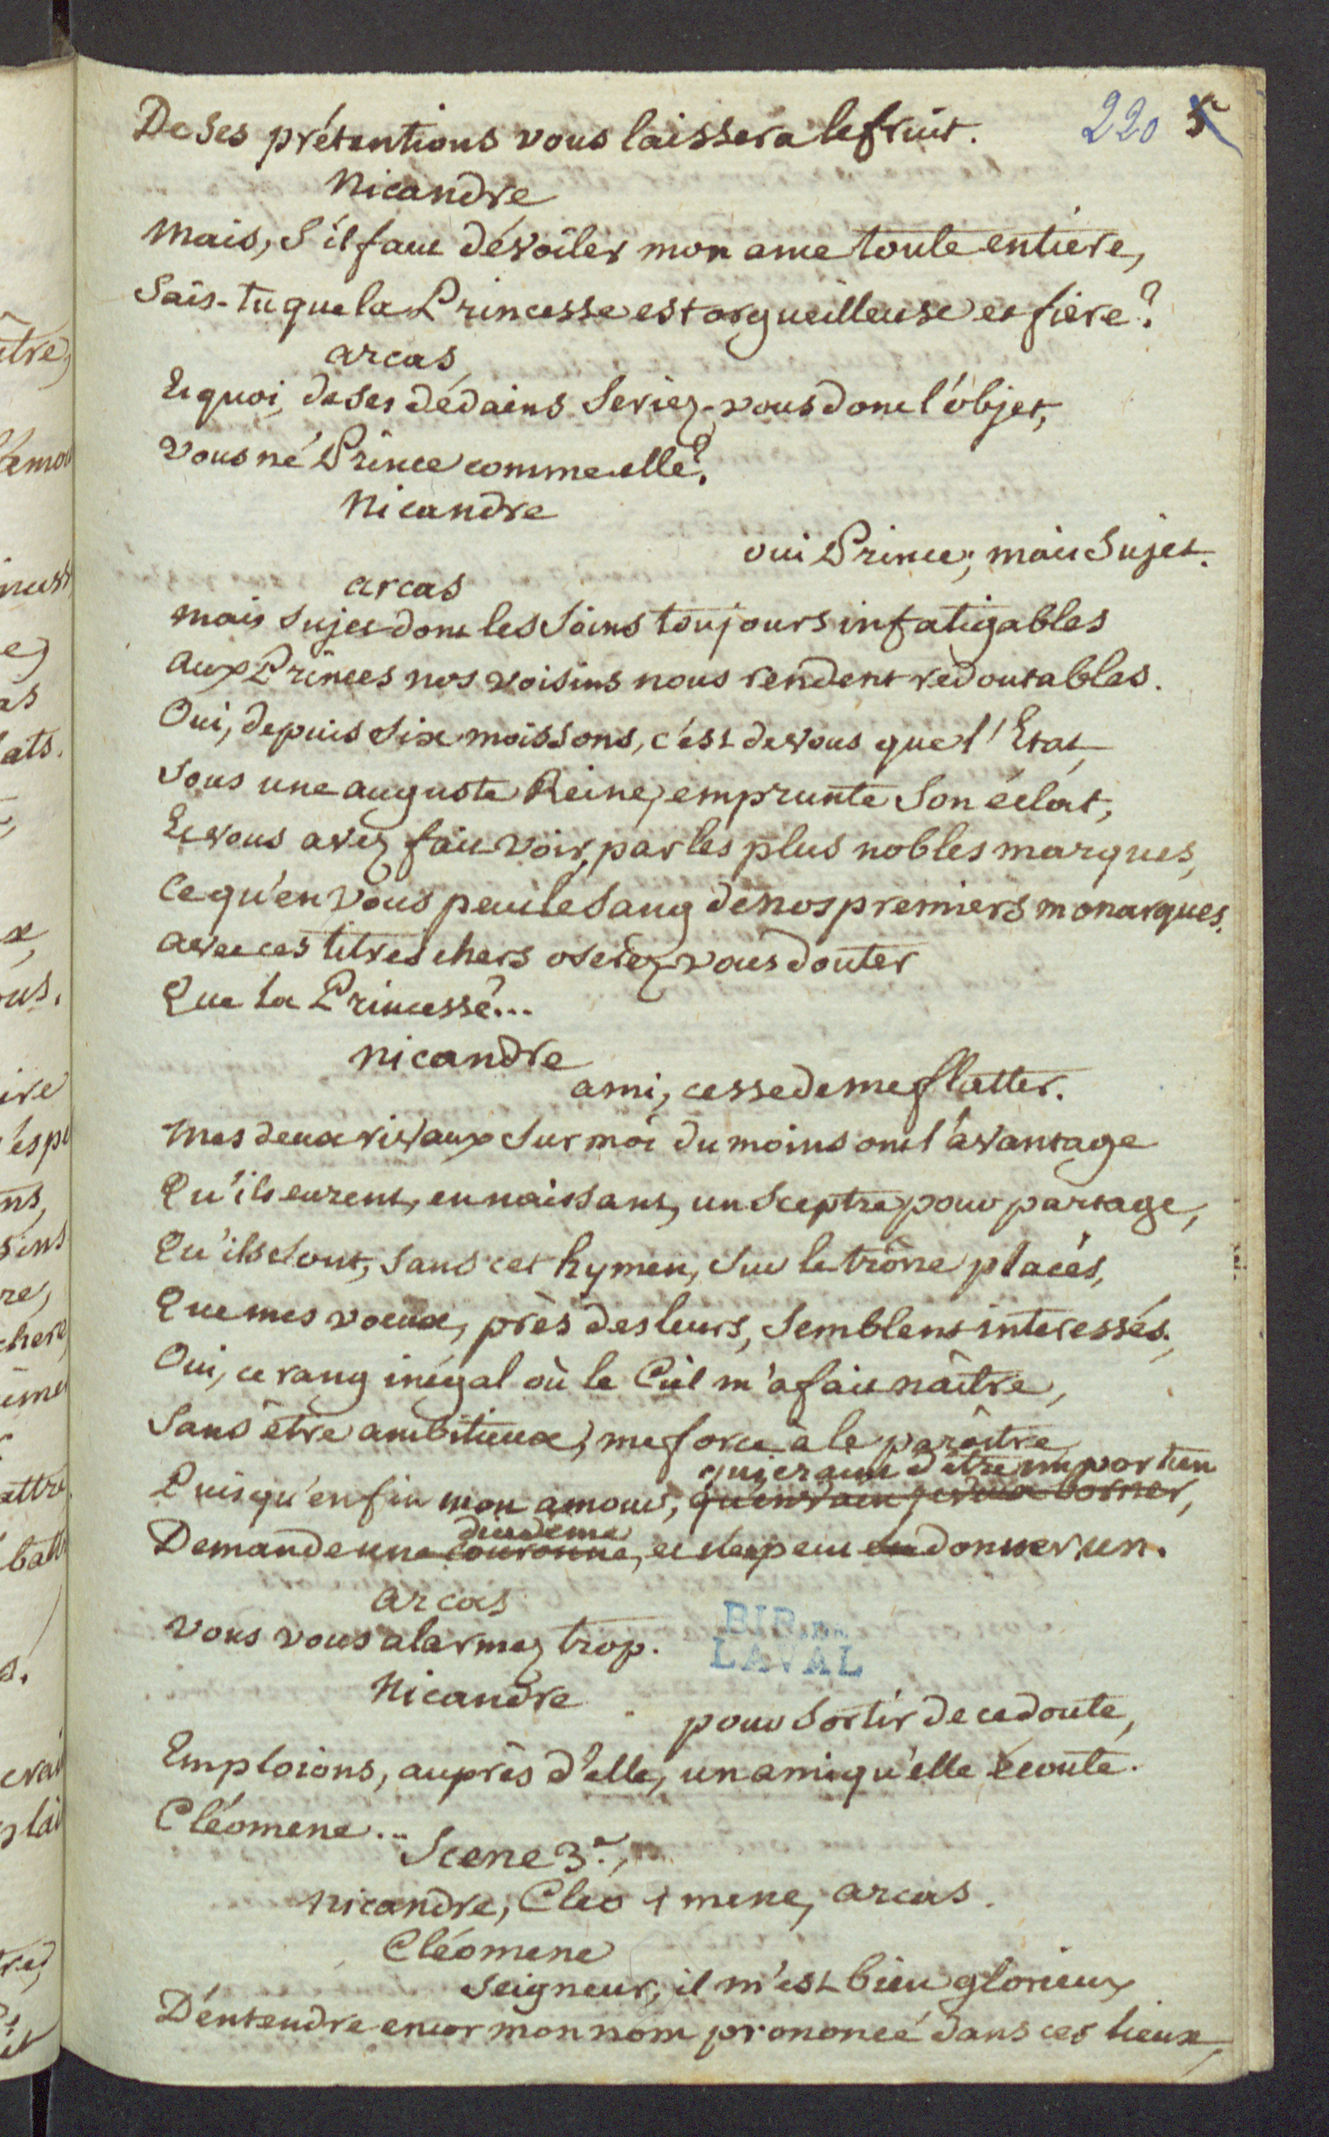 De ses prétentions vous laissera le fruit.
220 5
Nicandre
Mais, s'il faut dévoiler mon ame toute entiere,
Sais-tu que la Princesse est orgueilleuse et fiere?
arcas
Et quoi, de ses dédains seriez-vous donc l'objet,
Vous né Prince comme elle?
Nicandre
oui Prince; mais sujet.
arcas
mais sujet dont les soins toujours infatigables
aux Princes nos voisins nous rendent redoutables.
Oui, depuis six moissons, c'est de vous que l'Etat,
Sous une auguste Reine, emprunte son éclat,
Et vous avez fait voir, par les plus nobles marques,
Ce qu'en vous peut le sang de nos premiers monarques.
avec ces titres chers oserez-vous douter
Que la Princesse?...
nicandre
ami, cesse de me flatter.
Mes deux rivaux sur moi du moins ont l'avantage
Qu'ils eurent, en naissant, un sceptre pour partage,
Qu'ils sont, sans cet hymen, sur le trône placés,
Que mes voeux, près des leurs, semblent interessés.
Oui, ce rang inégal où le Ciel m'a fait naître,
Sans être ambitieux, me force à le parâitre,
qui craint d'être importun
Puisqu'enfin mon amour, qu'en vain je veux borner,
diadême
Demande une couronne, et n'en peut en donner un.
arcas
Vous vous alarmez trop.
BIB. DE
LAVAL
Nicandre
pour sortir de ce doute,
Emploions, auprès d'elle, un ami qu'elle écoute.
Cléomene...
Scene 3e.,
Nicandre, Cleomene, arcas.
Cléomene
Seigneur, il m'est bien glorieux
D'entendre encor mon nom prononcé dans ces lieux,